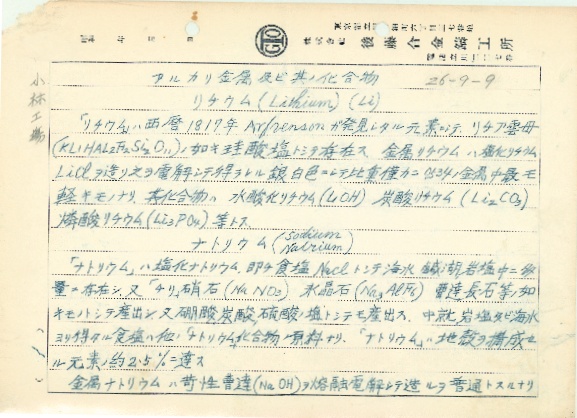 株式会社 後藤合金鋳工所
小林工場
アルカリ金属及ビ其ノ化合物 26-9-9
リチウム (Lithium) (Li)
「リチウム」ハ西暦1817年 Arfvenson ガ発見シタル元素ニシテ、リチア雲母
ノ如キ珪酸塩トシテ存在ス 金属リチウムハ塩化リチウム
LiClヲ造リ之ヲ電解シテ得ラレル 銀白色ニシテ比重僅カニ 0.534ノ金属中最モ
軽キモノナリ、其化合物ハ 水酸化リチウム(LiOH) 炭酸リチウム(Li₂CO₃)
燐酸リチウム(Li₃PO₄) 等トス
ナトリウム (Sodium Natrium)
「ナトリウム」ハ塩化ナトリウム、即チ食塩 NaCl トシテ海水 鹹湖岩塩中ニ
量ニ存在シ、又「チリ」硝石(NaNO₃) 氷晶石(Na₃AlF₆) 曹達長石等ノ如
キモノトシテ産出シ又硼酸炭酸硫酸ノ塩トシテモ産出ス、中就岩塩及ビ海水
ヨリ得タル食塩ハ他ノ「ナトリウム」化合物ノ原料ナリ、「ナトリウム」ハ地殻ヲ構成セ
ル元素ノ約2.5%ニ達ス
金属ナトリウムハ苛性曹達(NaOH)ヲ熔融電解シテ造ルヲ普通トスルナリ